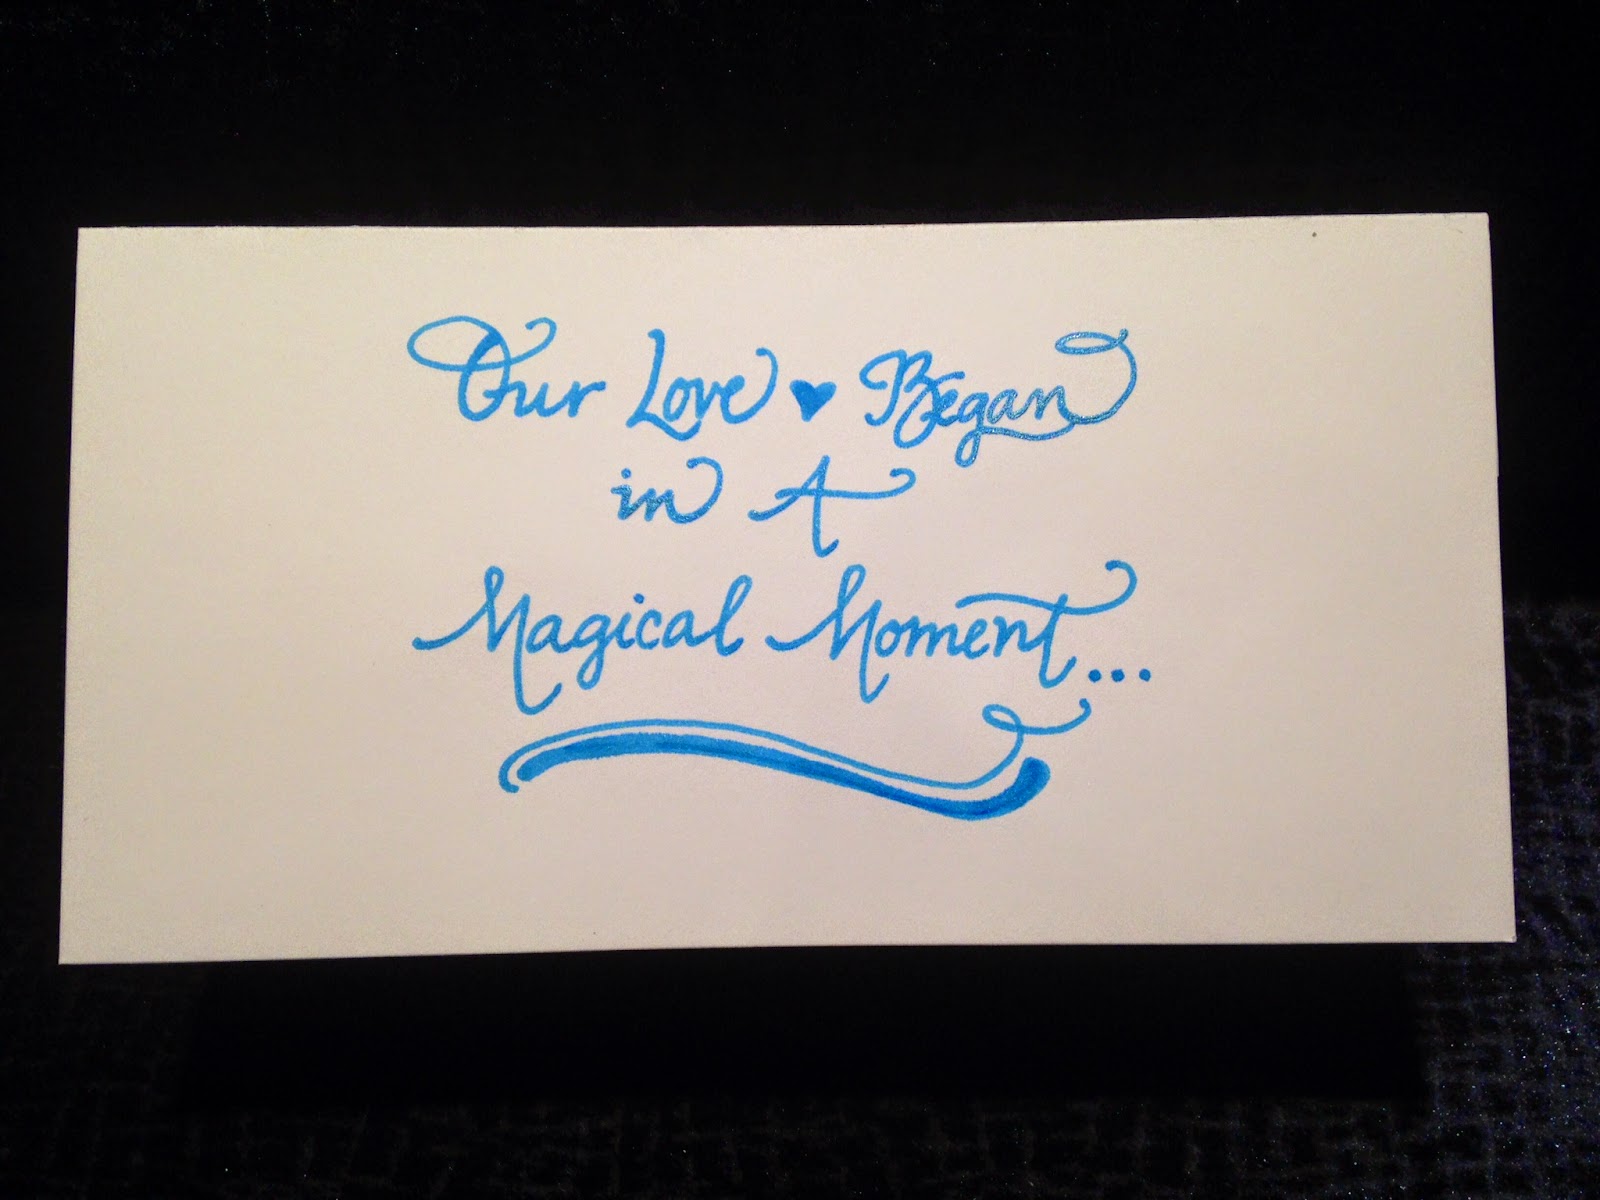 Our Love ♥ Began
in A
Magical Moment...